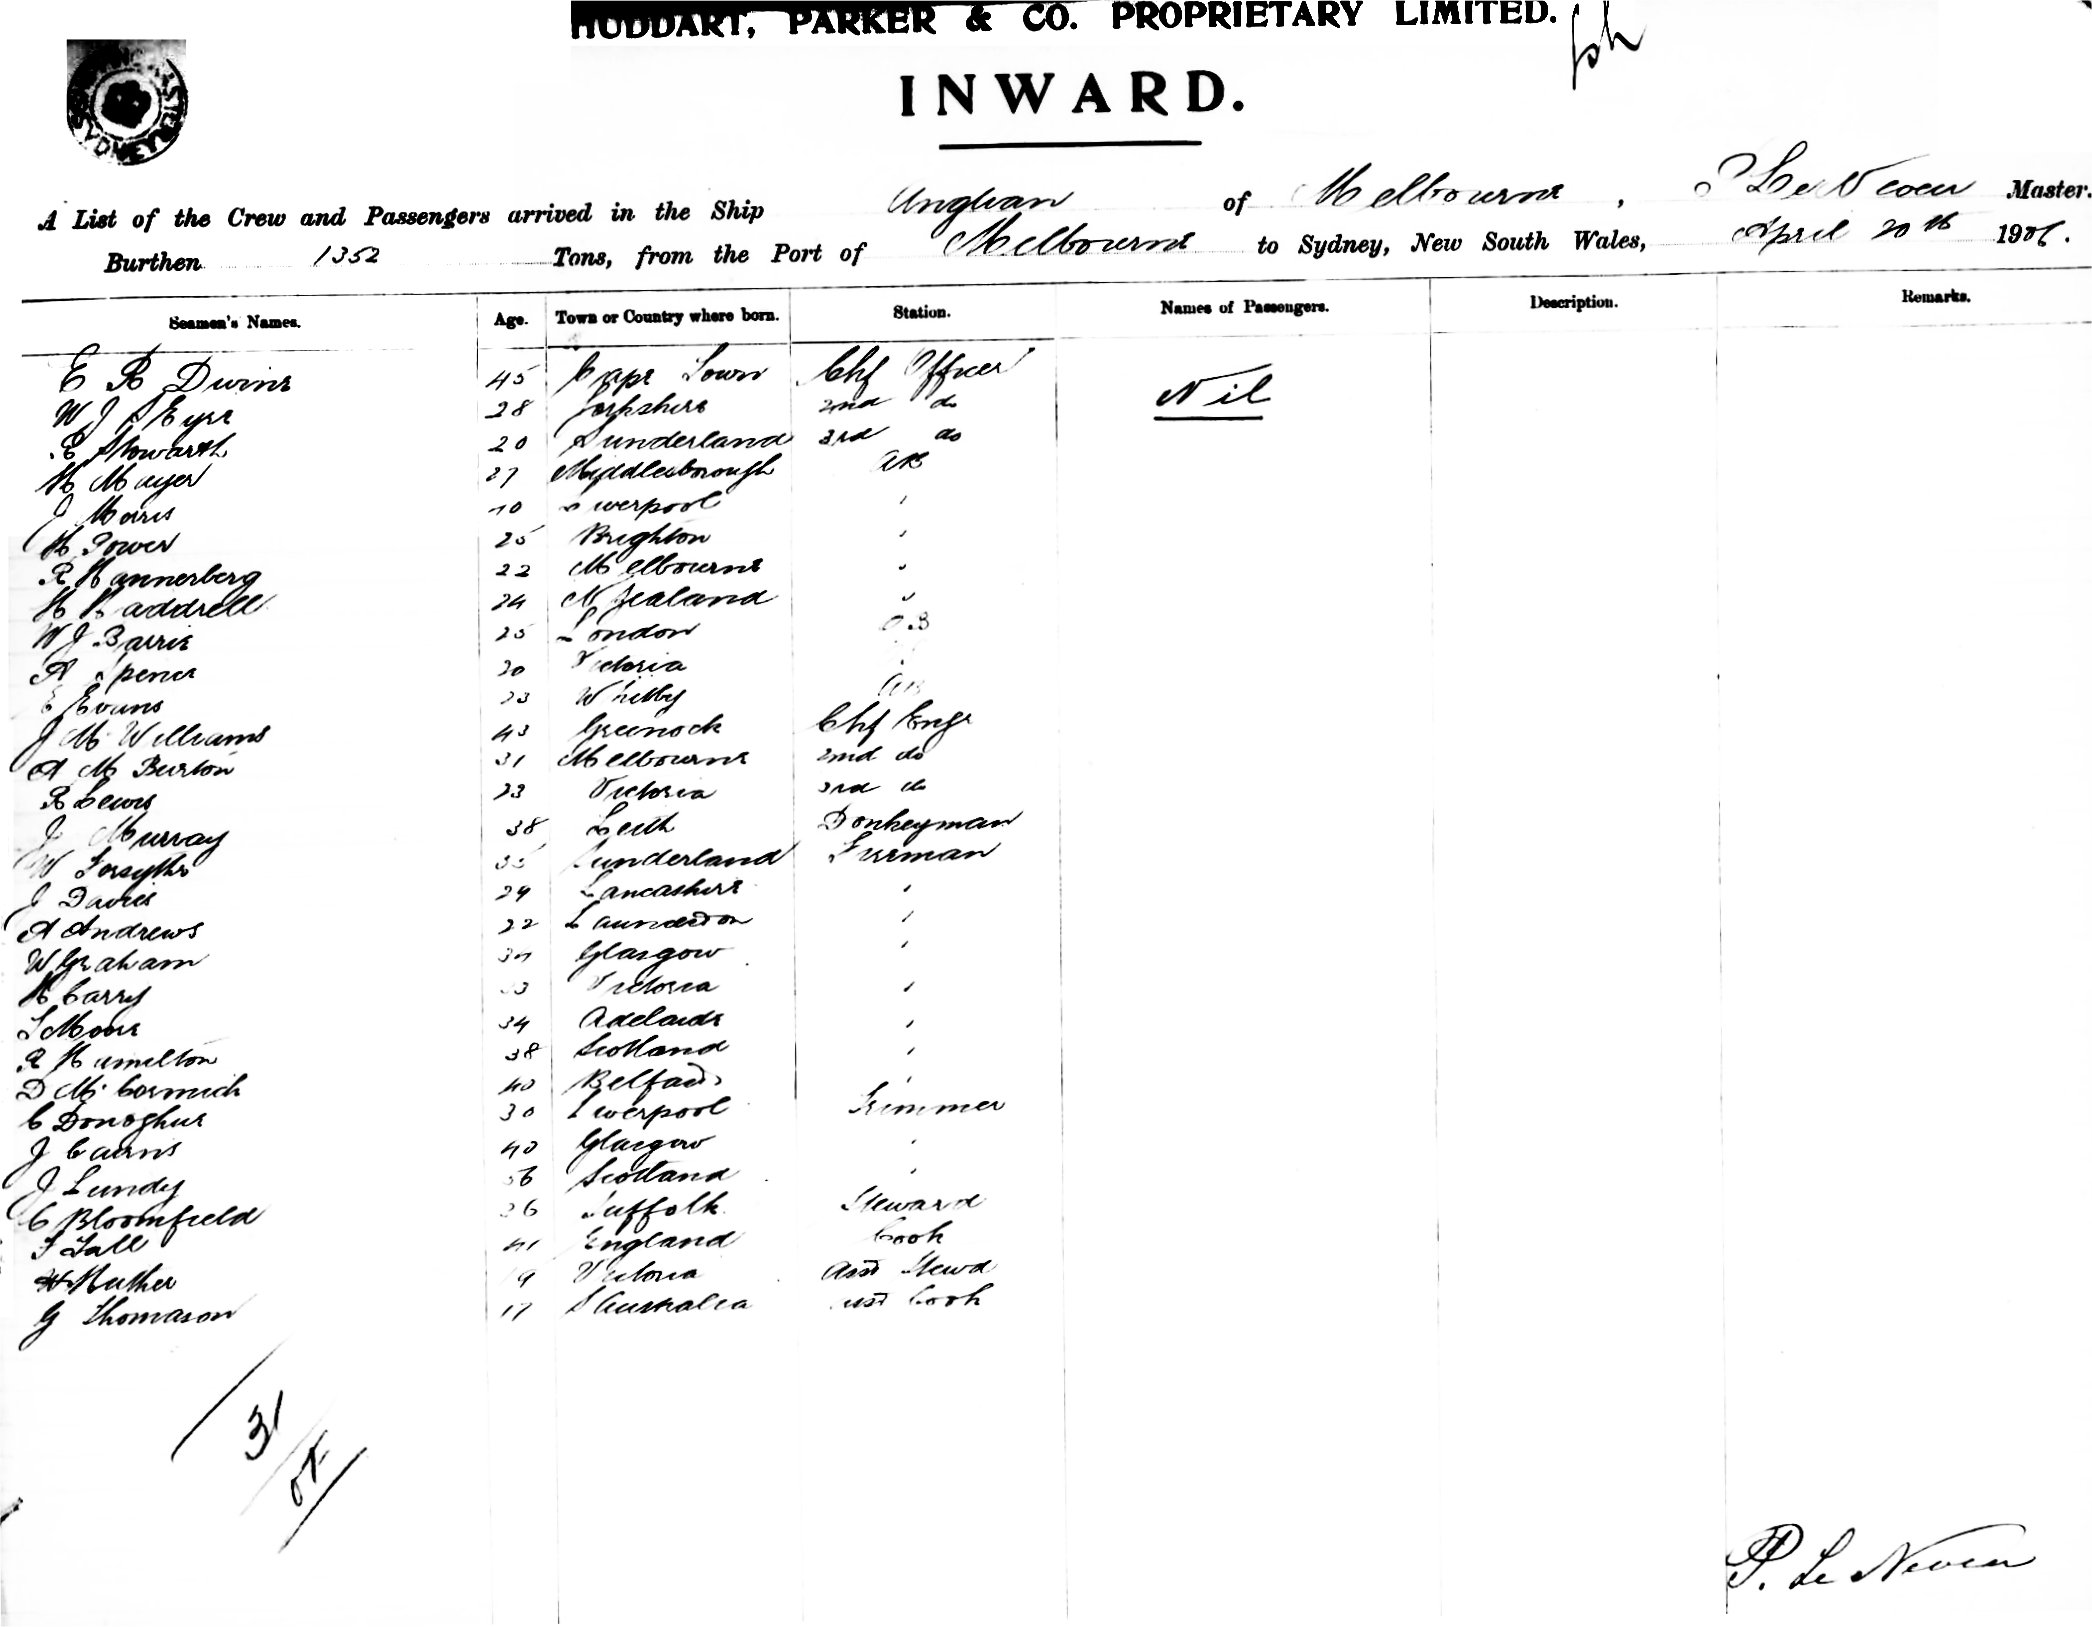 HUDDART, PARKER & CO. PROPRIETARY LIMITED.
INWARD.
SYDNEY
A List of the Crew and Passengers arrived in the Ship Anglian of Melbourne, P Le Neveu Master.
Burthen 1352 Tons, from the Port of Melbourne to Sydney, New South Wales, April 20th 1906.
Seamen's Names. Age. Town or Country where born. Station. Names of Passengers. Description. Remarks.
E R Divine 45 Cape Town Chf Officer Nil
W J S Eyre 28 Yorkshire 2nd do
E Howarth 20 Sunderland 3rd do
H Mayer 27 Middlesborough AB
J Morris Liverpool "
H Power 25 Brighton "
R Hannerberg 22 Melbourne "
H Raddrell 24 N Zealand "
W J Barrie 25 London OS
A Spence 20 Victoria
E Evans 23 Whitby AB
J McWilliams 43 Greenock Chf Engr
A M Burton 31 Melbourne 2nd do
R Lewis 23 Victoria 3rd do
J Murray 38 Leith Donkeyman
W Forsythe 35 Sunderland Fireman
J Davies 24 Lancashire "
A Andrews 22 "
W Graham Glasgow "
H Carry 33 Victoria "
L Moore 34 Adelaide "
R Hamilton 38 Scotland "
D McCormick 40 Belfast "
C Donoghue 30 Liverpool Trimmer
J Cairns 40 Glasgow "
J Lundy 36 Scotland "
C Bloomfield 26 Suffolk Steward
F Tall 41 England Cook
H Ruther 19 Victoria Asst Stewd
G Thomason 17 S Australia Asst Cook
31
P. Le Neveu